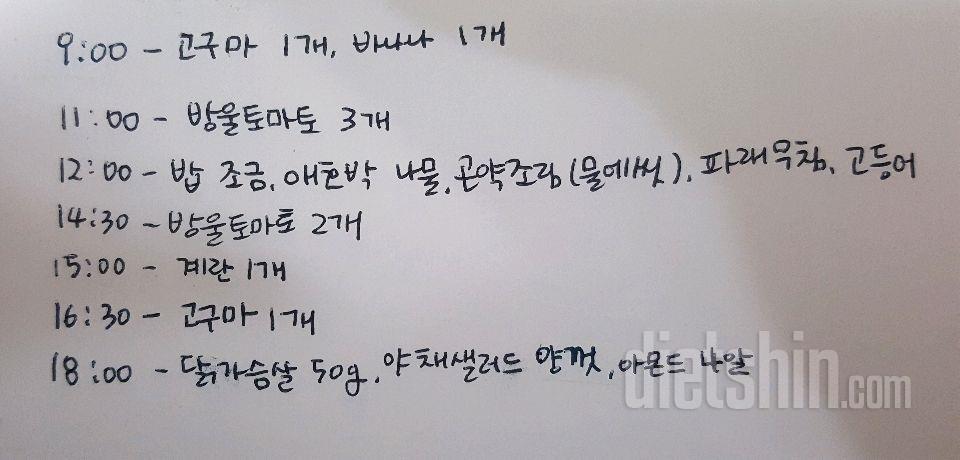 9:00 - 고구마 1개, 바나나 1개
11:00 - 방울토마토 3개
12:00 - 밥 조금, 애호박 나물, 곤약조림(물에씻), 파래무침, 고등어
14:30 - 방울토마토 2개
15:00 - 계란 1개
16:30 - 고구마 1개
18:00 - 닭가슴살 50g, 야채샐러드 양껏, 아몬드 낱알
dietshin.com